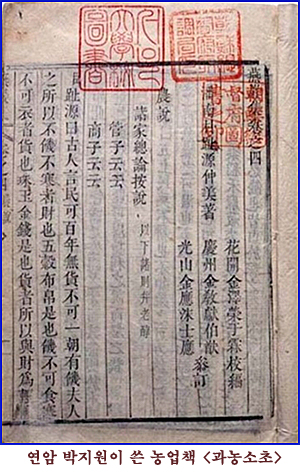 集卷之四
花開金澤榮于霖校編
潘南朴趾源仲美著
慶州金敎獻伯猷
參訂
光山金應洙士應
農說
諸家總論按說 以下諸則
管子云云
商子云云
臣趾源曰古人言民可百年無貨不可一朝有饑夫人
之所以不饑不寒者財也五穀布帛是也饑不可食寒
不可衣者貨也珠玉金錢是也貨者所以與財為
圖書
연암 박지원이 쓴 농업책 <과농소초>